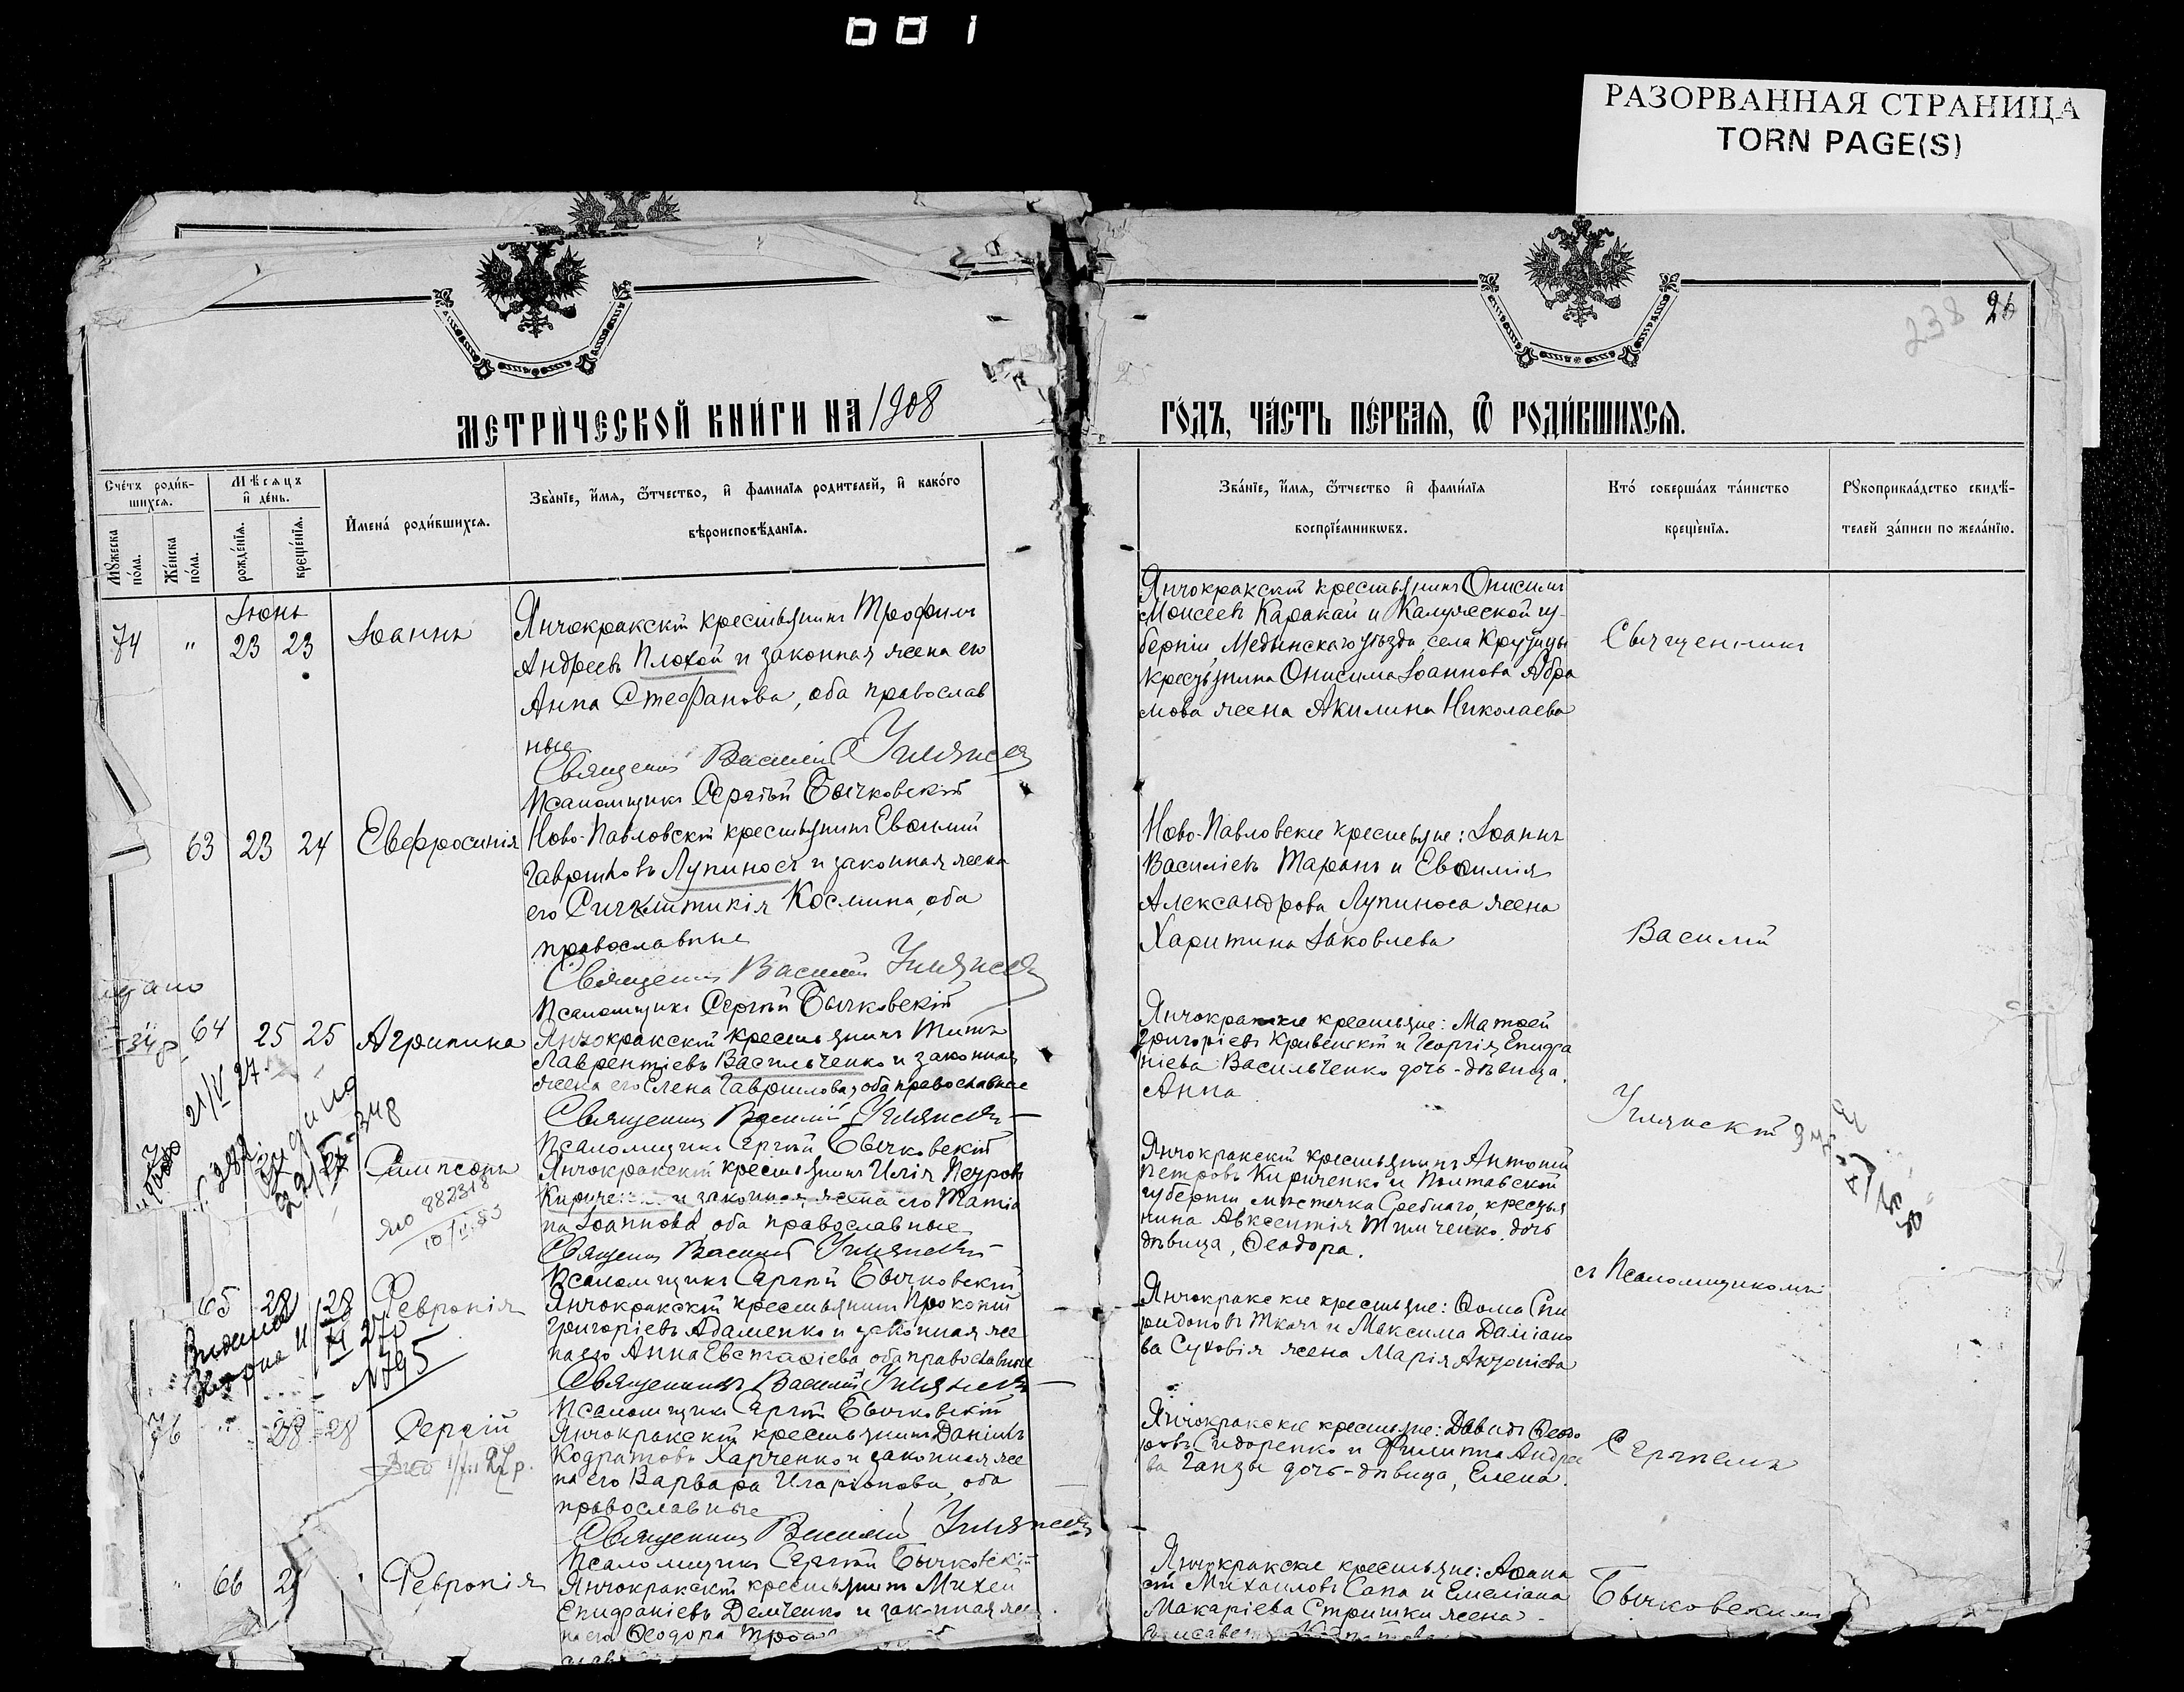 001
РАЗОРВАННАЯ СТРАНИЦА
TORN PAGE(S)
238 26
МЕТРИ́ЧЕСКОЙ КНИ́ГИ НА 1908
ГО́ДЪ, ЧА́СТЬ ПЕ́РВАЯ, Ѿ РОДИ́ВШИХСЯ.
Сче́тъ роди́в-
шихся.
Мѣ́сяцъ
и҆ де́нь.
Мꙋ́жеска по́ла.
Же́нска по́ла.
рожде́нїя.
креще́нїя.
И҆мена́ роди́вшихся.
Зва́нїе, и҆́мя, ѻ҆́тчество, и҆ фами́лїя роди́телей, и҆ како́го
вѣроисповѣ́данїя.
Зва́нїе, и҆́мя, ѻ҆́тчество и҆ фами́лїя
воспрїе́мникѡвъ.
Кто́ соверша́лъ та́инство
креще́нїя.
Рꙋкоприкла́дство свидѣ́-
телей за́писи по жела́нїю.
Іюнь
74 " 23 23 Іоаннъ
Янчокракскій крестьянинъ Трофимъ
Андреевъ Плохой и законная жена его
Анна Стефанова, оба православ
ные
Священникъ Василій
Псаломщикъ Сергѣй Бычковскій
Янчокракскій крестьянинъ Онисимъ
Моисеевъ Каракай и Калужской гу-
берніи Медынскаго уѣзда, села
крестьянина Онисима Іоаннова Абра
мова жена Акилина Николаева
Священникъ
63 23 24 Евфросинія
Ново-Павловскій крестьянинъ Евѳимій
Гавриловъ Лупиносъ и законная жена
его Сигклитикія Космина, оба
православные
Священникъ Василій
Псаломщикъ Сергѣй Бычковскій
Ново-Павловскіе крестьяне: Іоаннъ
Василіевъ Таранъ и Евѳимія
Александрова Лупиноса жена
Харитина Іаковлева
Василій
64 25 25 Агрипина
Янчокракскій крестьянинъ Титъ
Лаврентіевъ Васильченко и законная
жена его Елена Гаврилова, оба православные
Священникъ Василій
Псаломщикъ Сергѣй Бычковскій
Янчокракскіе крестьяне: Матѳей
Григоріевъ Кривенскій и Георгія Епифа
ніева Васильченко дочь-дѣвица
Анна
21/V 27
Сампсонъ
10/II.83
Янчокракскій крестьянинъ Илія Петровъ
и законная жена его Татіа
на Іоаннова оба православные
Священникъ Василій
Псаломщикъ Сергѣй Бычковскій
Янчокракскій крестьянинъ Антоній
Петровъ Кириченко и Полтавской
губерніи мѣстечка Сребнаго, крестья
нина Авксентія Тимченко дочь
дѣвица, Ѳеодора.
съ Псаломщикомъ
65 28 28 Февронія
N 795
Янчокракскій крестьянинъ Прокопій
Григоріевъ Адаменко и законная же
на его Анна Евстаѳіева оба православные
Священникъ Василій
Псаломщикъ Сергѣй Бычковскій
Янчокракскіе крестьяне: Ѳома Спи
ридоновъ Ткачъ и Максима Даміано
ва Суховія жена Марія Антоніева
76 28 28 Сергій
Янчокракскій крестьянинъ Даніилъ
Кодратовъ Харченко и законная же
на его Варвара Иларіонова, оба
православные
Священникъ Василій
Псаломщикъ Сергѣй Бычковскій
Янчокракскіе крестьяне: Давидъ Ѳеодо
ровъ Сидоренко и Филиппа Андрее
ва Ганзы дочь-дѣвица, Елена.
Сергѣемъ
" 66 Февронія
Янчокракскій крестьянинъ Михей
Епифаніевъ Демченко и законная же
на его Ѳеодора
Янчокракскіе крестьяне: Аѳана
сій Михаиловъ Сапа и Емеліана
Макаріева Стришки жена
Бычковскимъ